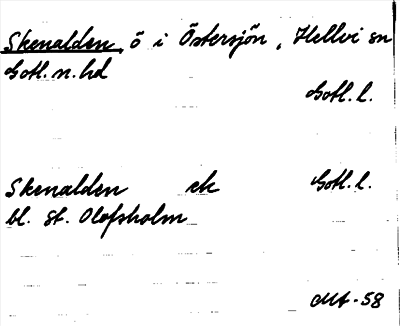 Skenalden, ö i Östersjön, Hellvi sn
Gotl. n. hd
Gotl. l.
Skenalden ek Gotl. l.
bl. St. Olofsholm